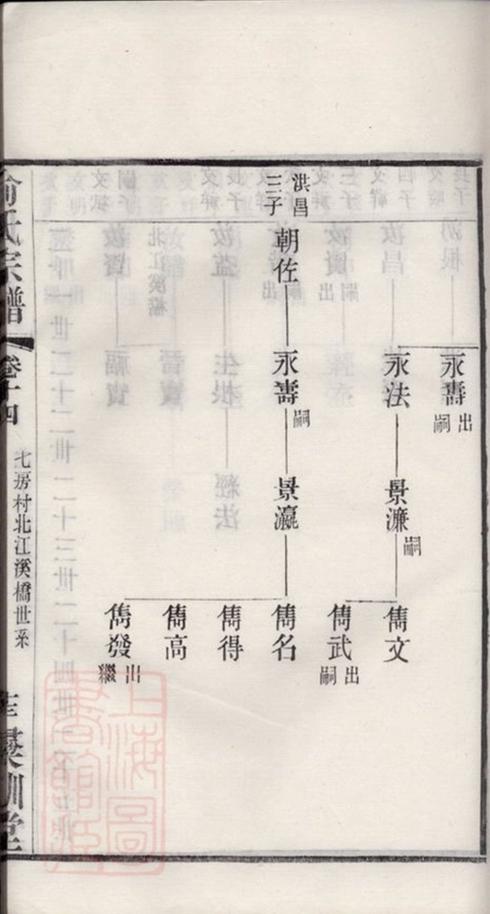 永壽 出嗣
永法
景濂 嗣
雋文
雋武 出嗣
洪昌三子
朝佐
永壽 嗣
景瀛
雋名
雋得
雋高
雋發 出繼
俞氏宗譜
卷十四
七房村北江溪橋世系
訓堂
上海圖書館藏